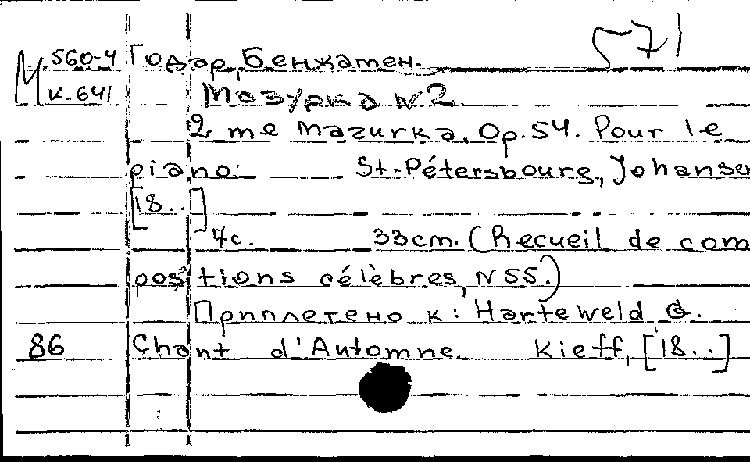 571
М 560-4 Годар, Бенжамен.
к-641 Мазурка №2
2 me Mazurka, Op.54. Pour le
piano. St.-Pétersbourg, Johansen
[18..]
7с. 33cm. (Recueil de com
positions célèbres, N55.)
Приплетено к: Harteweld G.
86 Chant d'Automne. Kieff, [18..]